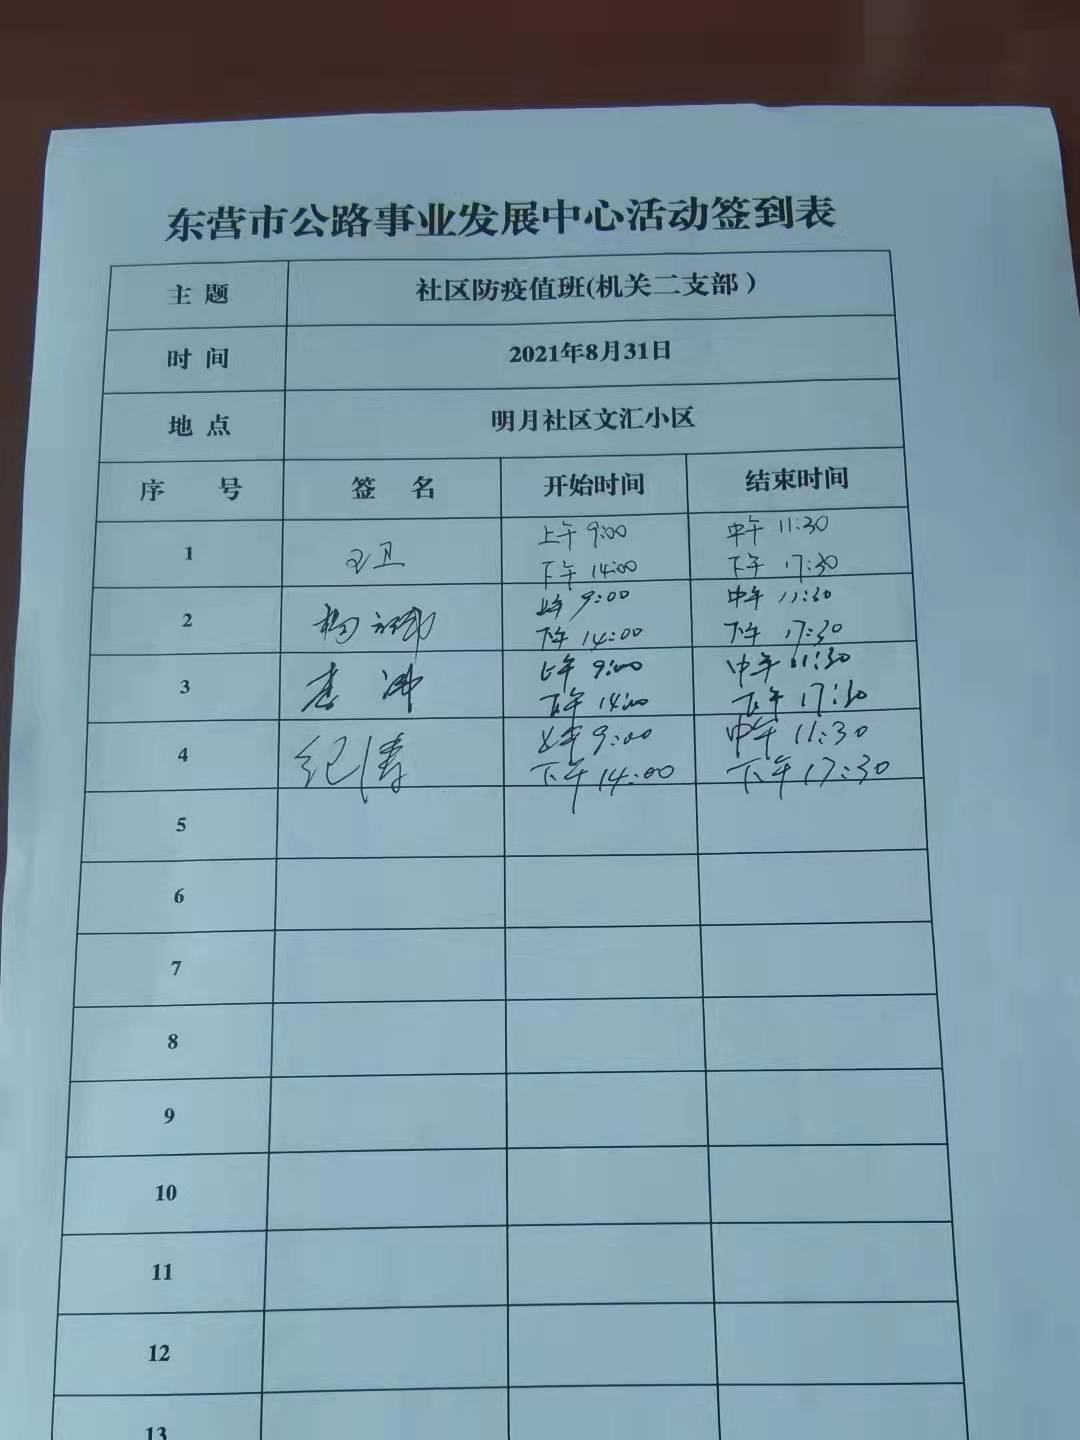 东营市公路事业发展中心活动签到表
主 题 社区防疫值班(机关二支部)
时 间 2021年8月31日
地 点 明月社区文汇小区
序 号 签 名 开始时间 结束时间
1 王卫 上午 9:00 中午 11:30
下午 14:00 下午 17:30
2 杨 上午 9:00 中午 11:30
下午 14:00 下午 17:30
3 上午 9:00 中午 11:30
下午 14:00 下午 17:30
4 纪涛 上午 9:00 中午 11:30
下午 14:00 下午 17:30
5
6
7
8
9
10
11
12
13